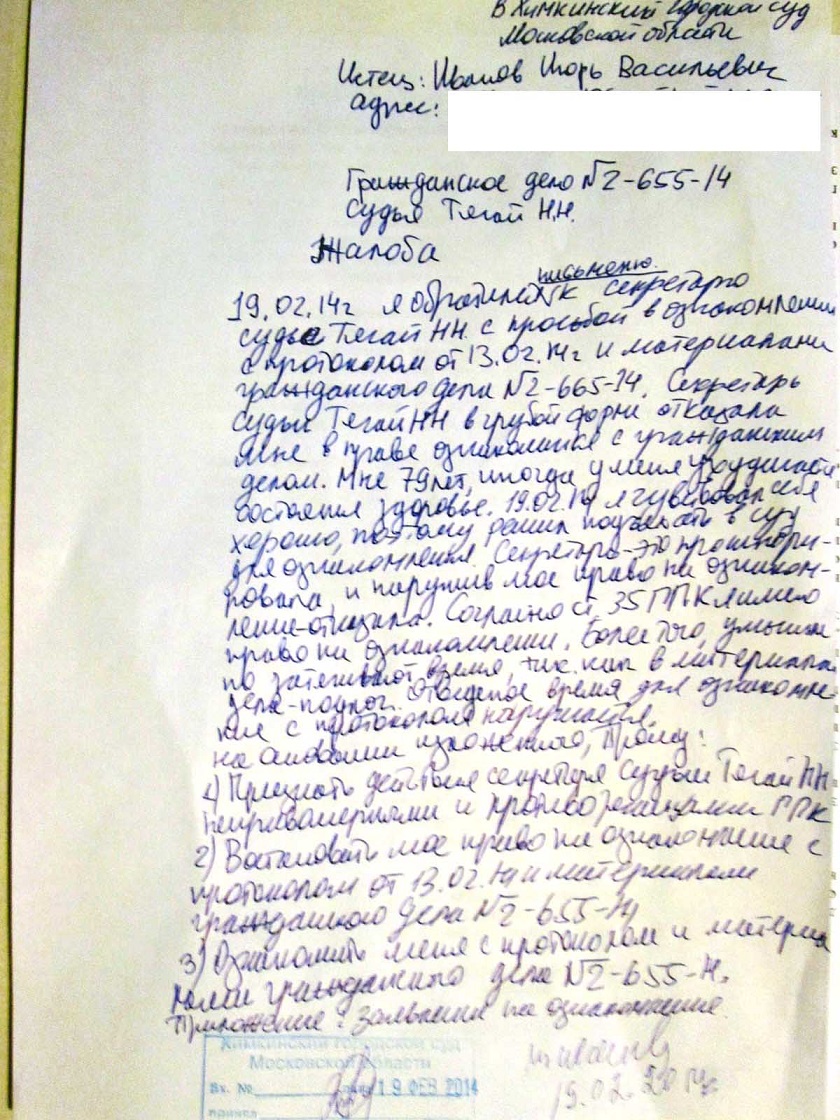 В Химкинский городской суд
Московской области
Истец: Иванов Игорь Васильевич
адрес:
Гражданское дело №2-655-14
Судья Тягай Н.Н.
Жалоба
письменно.
19.02.14г я обратился к секретарю
судье Тягай НН. с просьбой в ознакомлении
с протоколом от 13.02.14г и материалами
гражданского дела №2-665-14. Секретарь
судьи Тягай НН в грубой форме отказала
мне в праве ознакомится с гражданским
делом. Мне 79 лет, иногда у меня ухудшается
состояния здоровье. 19.02.14 я чувствовал себя
хорошо, поэтому решил поехать в суд
для ознакомления. Секретарь-это проигнори-
ровала, и нарушив мое право на ознаком-
ление-отказала. Согласно ст. 35 ГПК я имею
право на ознакомлении. Более того, умышлен
но затягивают время, так как в материалах
дела-подлог. Отведеное время для ознакомле-
ние с протоколом нарушается.
На основании изложенного, Прошу:
1) Признать действия секретаря судьи Тягай НН
неправомерными и противоречащими ГПК
2) Востановить мое право на ознакомление с
протоколом от 13.02.14 и материалами
гражданского дела №2-655-14
3) Ознакомить меня с протоколом и материа
лами гражданского дела №2-655-14.
Приложение: заявление на ознакомление.
Химкинский городской суд
Московской области
Вх. №
19 ФЕВ 2014
19.02.2014г.